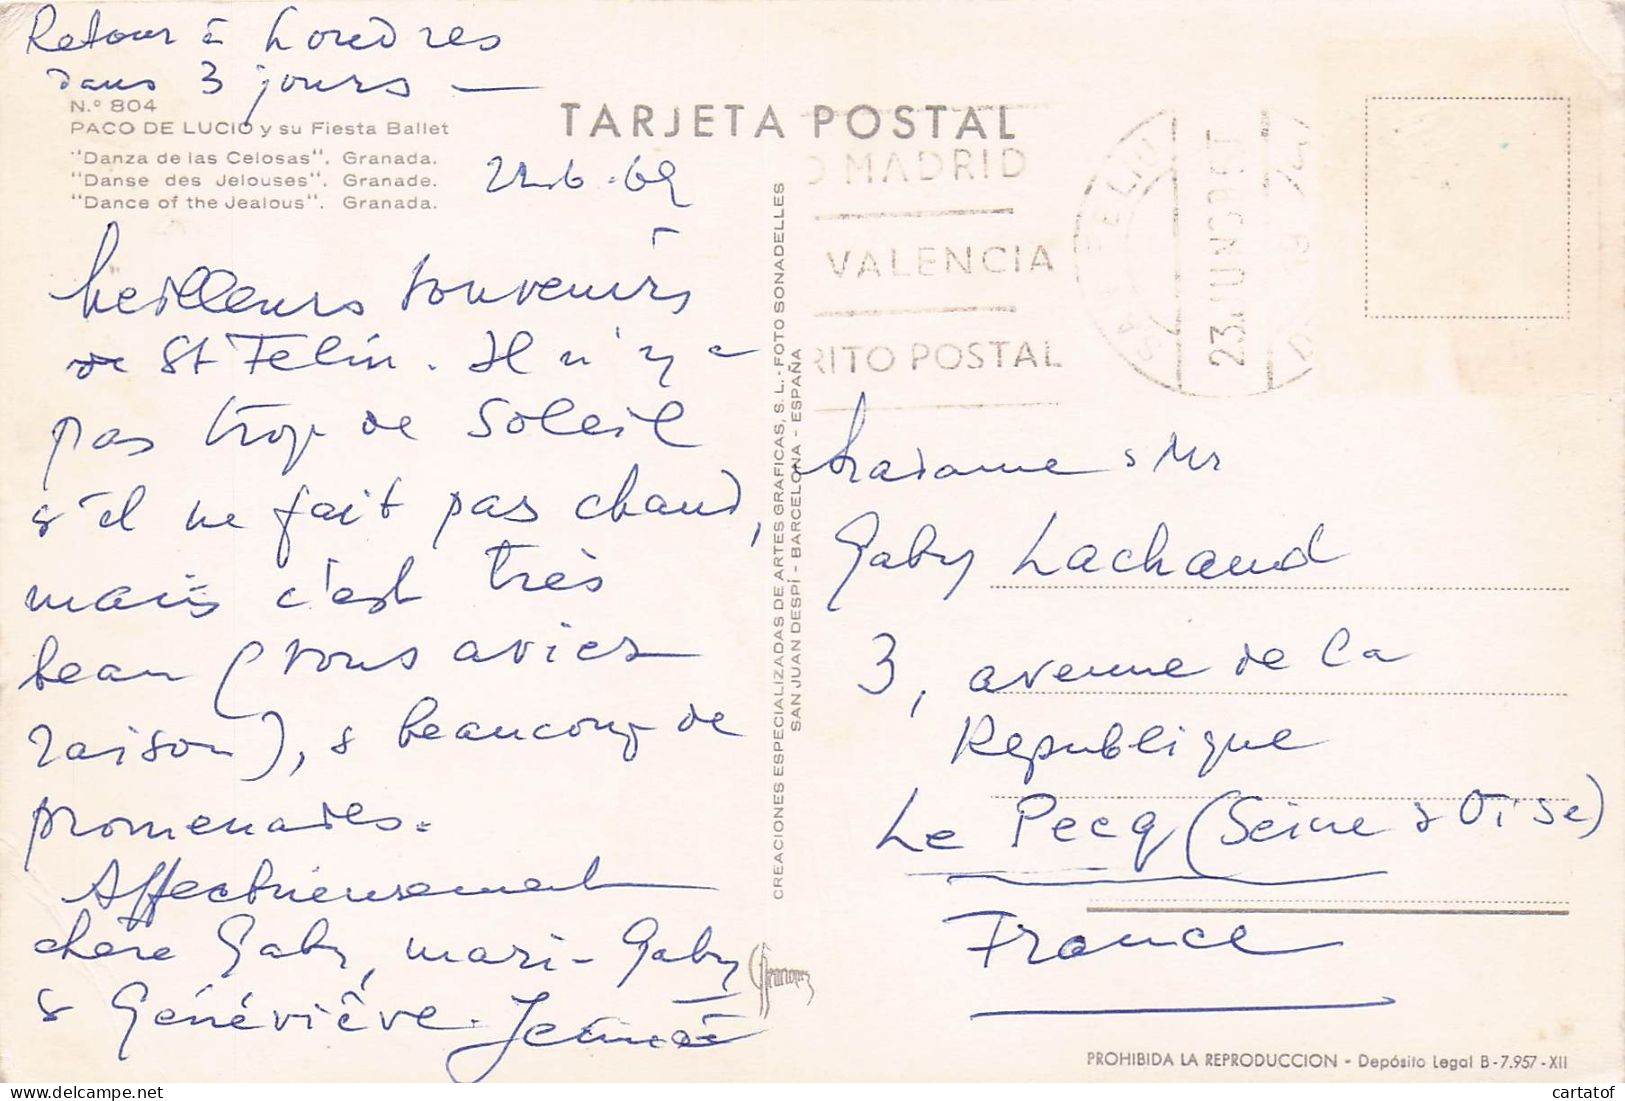 Retour à Londres
dans 3 jours —
N.º 804
PACO DE LUCIO y su Fiesta Ballet
"Danza de las Celosas". Granada.
"Danse des Jelouses". Granade.
"Dance of the Jealous". Granada.
TARJETA POSTAL
O MADRID
VALENCIA
RITO POSTAL
23. JUN
Meilleurs souvenirs
de St Feliu. Il n'y a
pas trop de soleil
& il ne fait pas chaud,
mais c'est très
beau (vous aviez
raison), & beaucoup de
promenades.
Affectueusement
chère Gaby, mari-Gaby
& Géneviève.
CREACIONES ESPECIALIZADAS DE ARTES GRAFICAS, S. L. - FOTO SONADELLES
SAN JUAN DESPÍ - BARCELONA - ESPAÑA
Madame & Mr
Gaby Lachaud
3, avenue de la
Republique
Le Pecq (Seine & Oise)
France
PROHIBIDA LA REPRODUCCION - Depósito Legal B-7.957-XII
cartatof